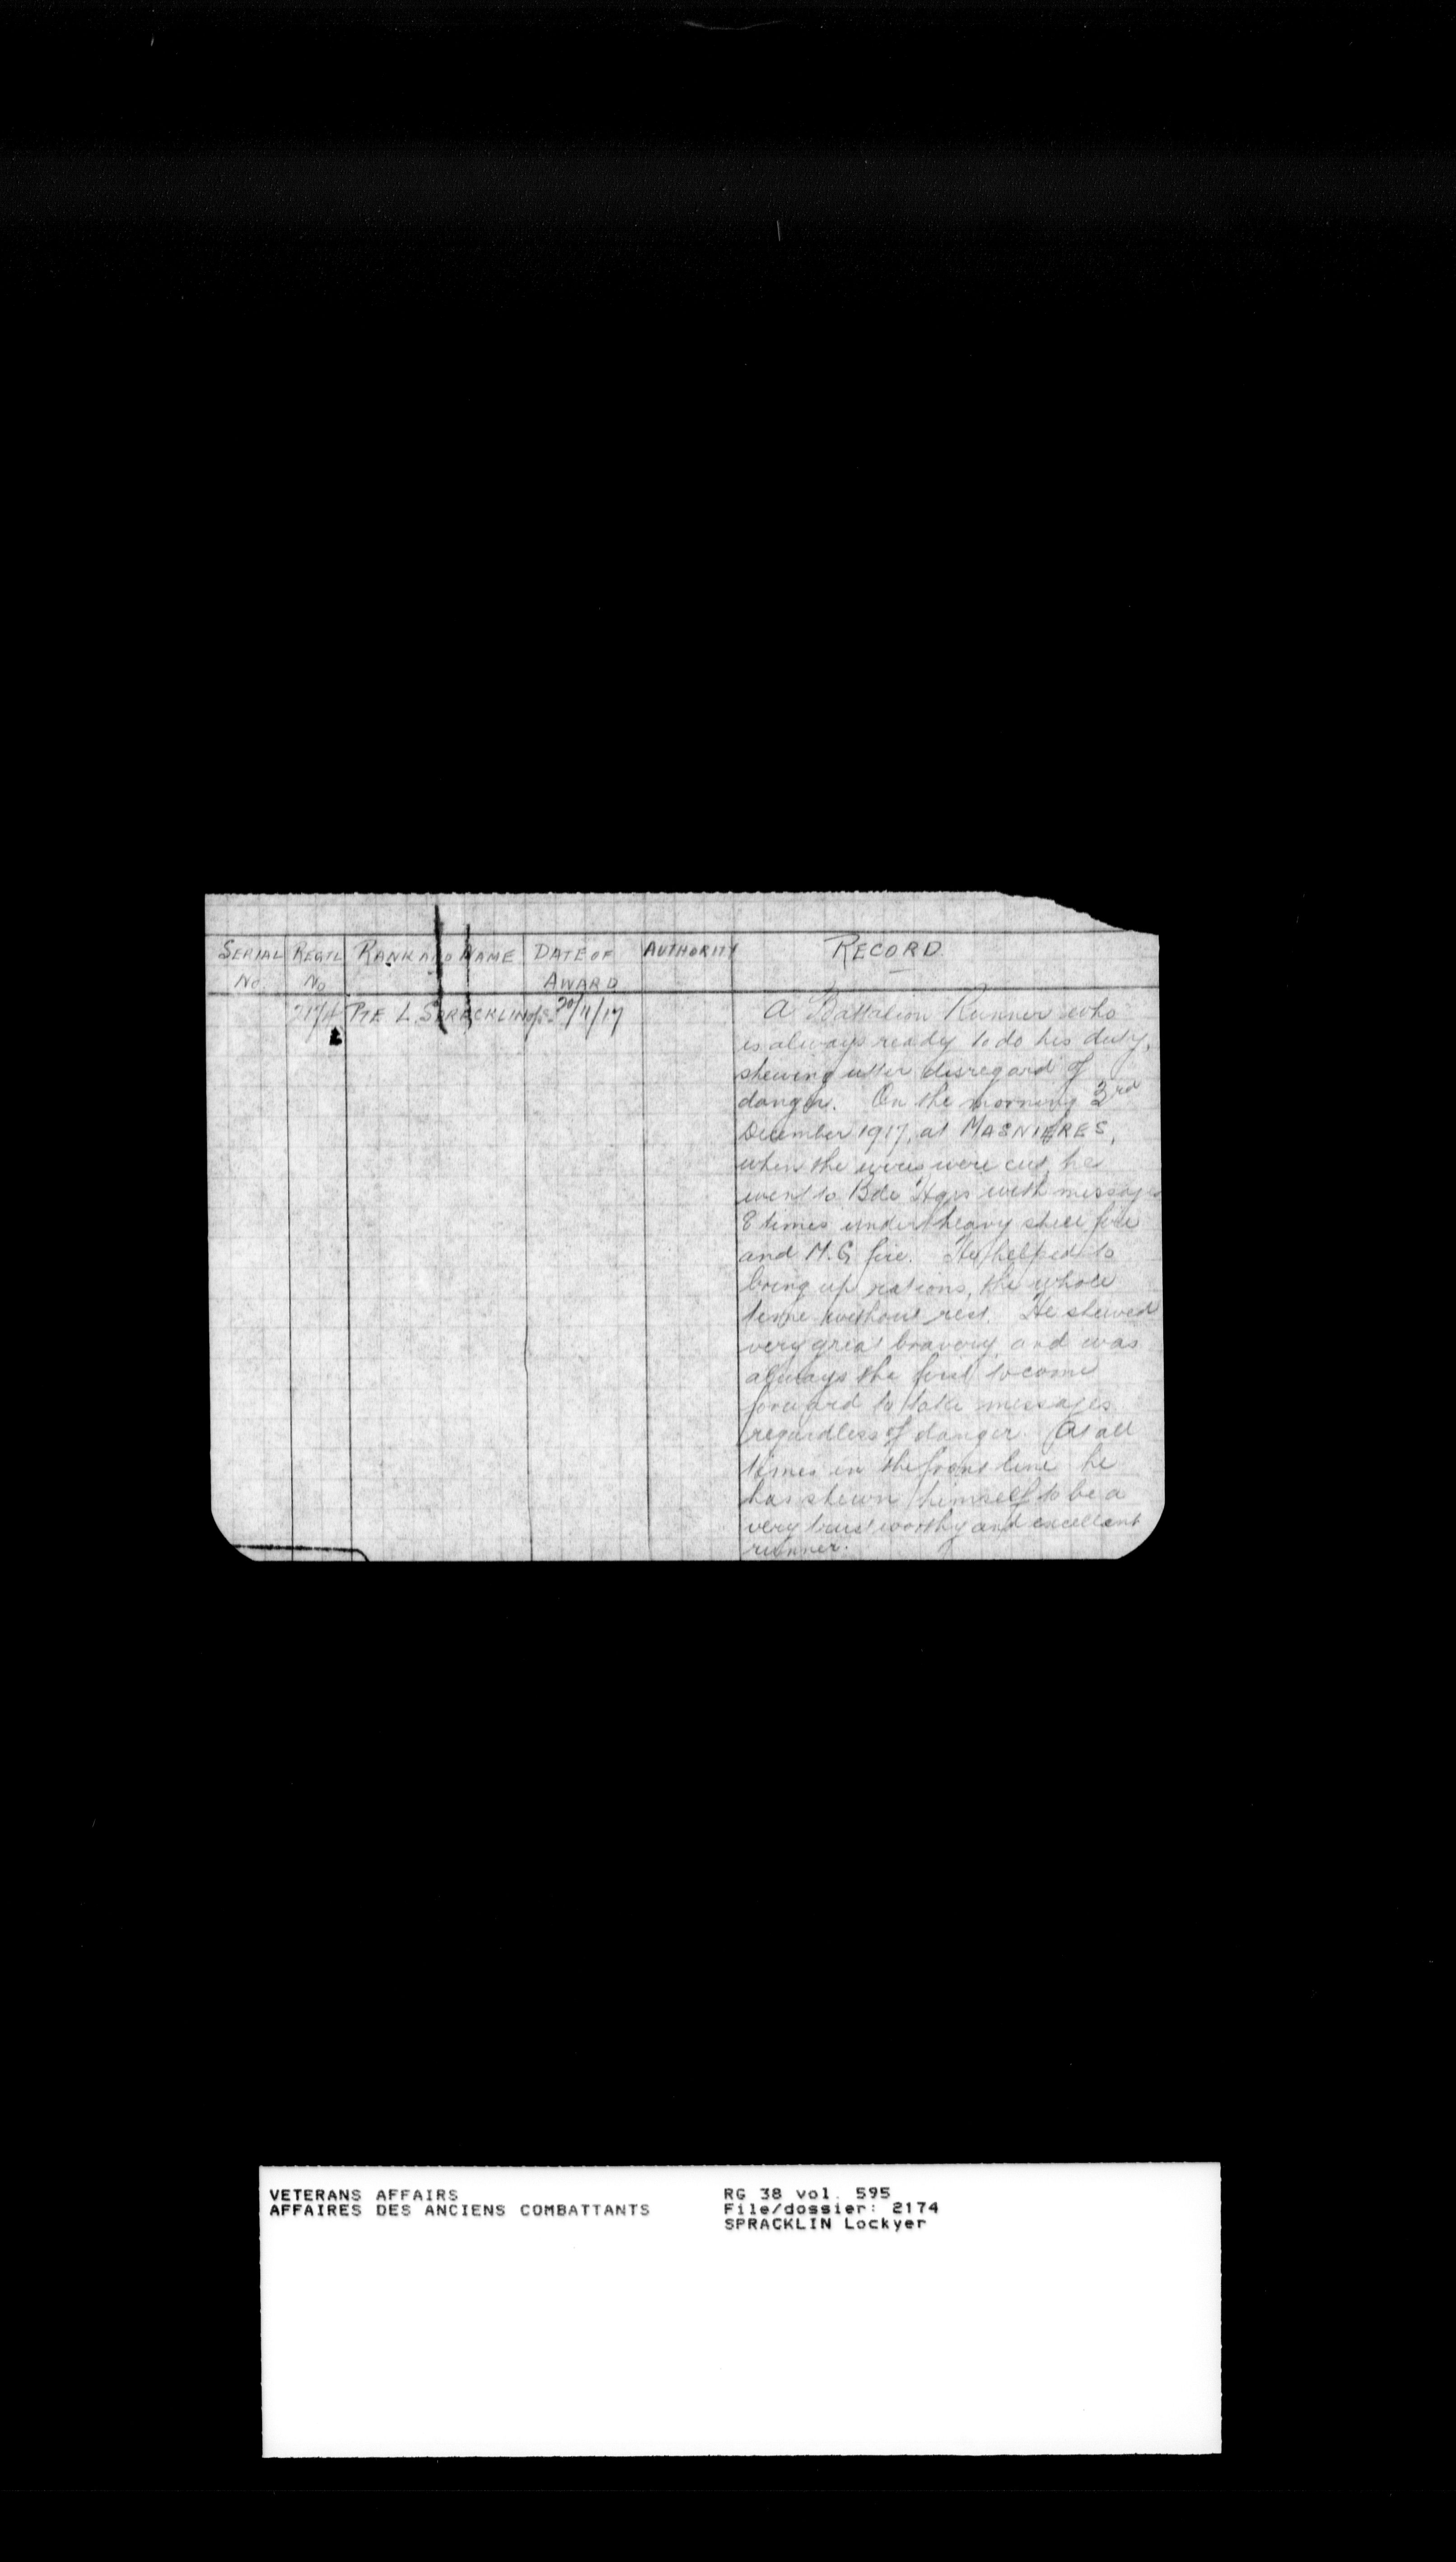 SERIAL No. REGTL No RANK AND NAME DATE OF AWARD AUTHORITY RECORD
2174 PTE L. SPRACKLIN 20/11/17
A Battalion Runner who
is always ready to do his duty,
shewing utter disregard of
danger. On the morning 3rd
December 1917, at MASNIERES,
when the wires were cut, he
went to Bde Hqrs with messages
8 times under heavy shell fire
and M.G. fire. He helped to
bring up rations, the whole
time without rest. He shewed
very great bravery, and was
always the first to come
forward to take messages
regardless of danger. At all
times in the front line he
has shewn himself to be a
very trustworthy and excellent
runner.
VETERANS AFFAIRS
AFFAIRES DES ANCIENS COMBATTANTS
RG 38 vol. 595
File/dossier: 2174
SPRACKLIN Lockyer